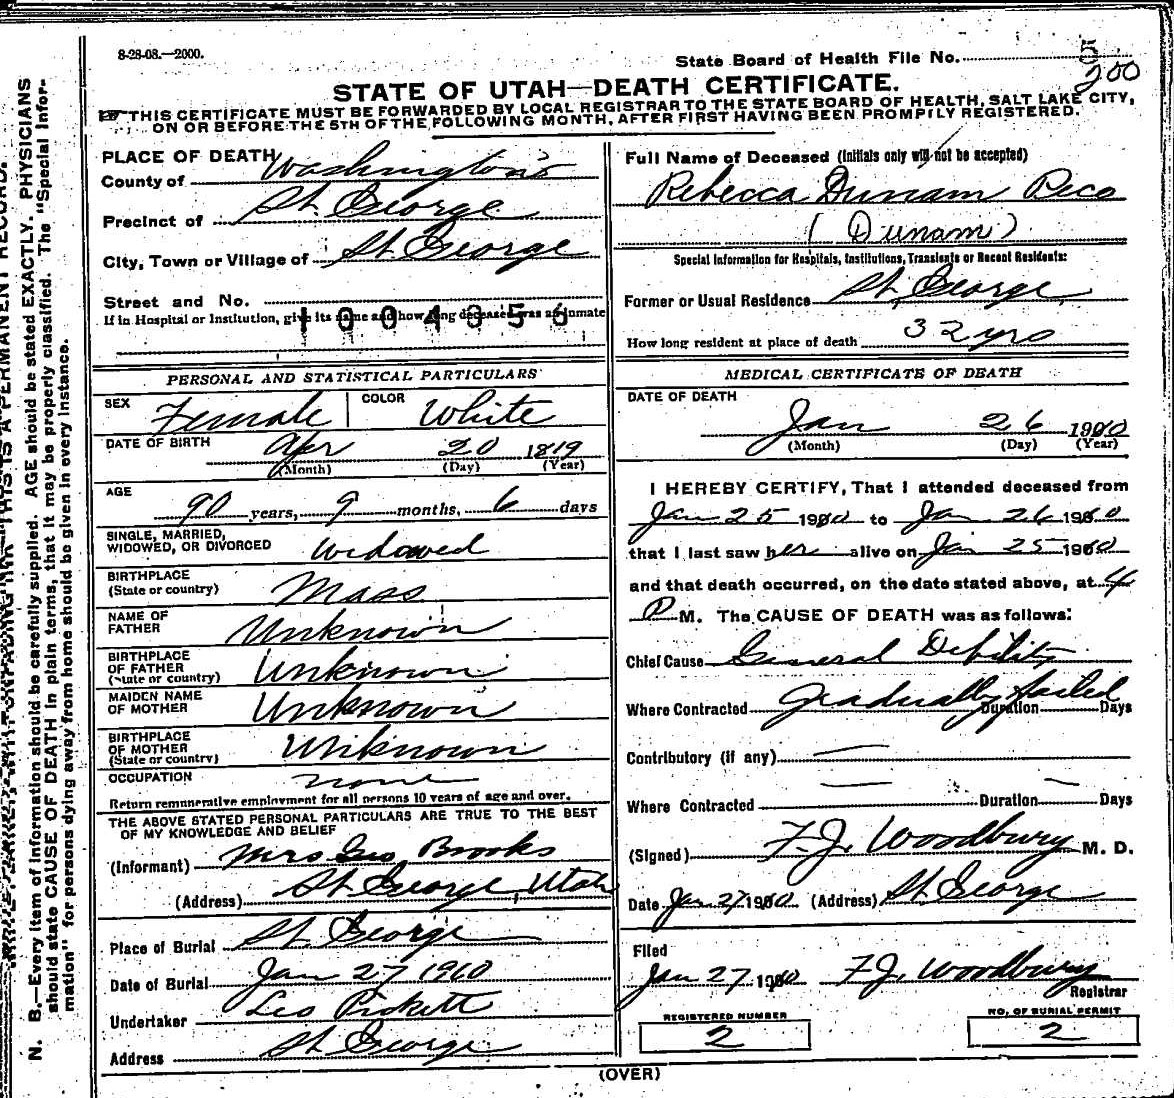 8-28-08.—2000.
State Board of Health File No. 5
200
STATE OF UTAH—DEATH CERTIFICATE.
THIS CERTIFICATE MUST BE FORWARDED BY LOCAL REGISTRAR TO THE STATE BOARD OF HEALTH, SALT LAKE CITY,
ON OR BEFORE THE 5TH OF THE FOLLOWING MONTH, AFTER FIRST HAVING BEEN PROMPTLY REGISTERED.
PLACE OF DEATH
County of Washington
Precinct of St. George
City, Town or Village of St George
Street and No.
If in Hospital or Institution, give its name and how long deceased was an inmate
1004356
Full Name of Deceased (Initials only will not be accepted)
Rebecca Dunam Peco
(Dunam)
Special Information for Hospitals, Institutions, Transients or Recent Residents:
Former or Usual Residence St. George
How long resident at place of death 32 yrs
PERSONAL AND STATISTICAL PARTICULARS
SEX Female COLOR White
DATE OF BIRTH Apr 20 1819
(Month) (Day) (Year)
AGE
90 years, 9 months, 6 days
SINGLE, MARRIED,
WIDOWED, OR DIVORCED Widowed
BIRTHPLACE
(State or country) Mass
NAME OF
FATHER Unknown
BIRTHPLACE
OF FATHER
(State or country) Unknown
MAIDEN NAME
OF MOTHER Unknown
BIRTHPLACE
OF MOTHER
(State or country) Unknown
OCCUPATION none
Return remunerative employment for all persons 10 years of age and over.
THE ABOVE STATED PERSONAL PARTICULARS ARE TRUE TO THE BEST
OF MY KNOWLEDGE AND BELIEF
(Informant) Mrs Geo Brooks
(Address) St George, Utah
Place of Burial St George
Date of Burial Jan 27 1910
Undertaker Leo Pickett
Address St George
MEDICAL CERTIFICATE OF DEATH
DATE OF DEATH
Jan 26 1910
(Month) (Day) (Year)
I HEREBY CERTIFY, That I attended deceased from
Jan 25 1910 to Jan 26 1910
that I last saw her alive on Jan 25 1910
and that death occurred, on the date stated above, at 4
P M. The CAUSE OF DEATH was as follows:
Chief Cause General Debility
Where Contracted gradually failed Duration Days
Contributory (if any)
Where Contracted Duration Days
(Signed) F. J. Woodbury M. D.
Date Jan 27 1910 (Address) St George
Filed
Jan 27 1910 F. J. Woodbury
Registrar
REGISTERED NUMBER
2
NO. OF BURIAL PERMIT
2
(OVER)
N. B.—Every item of information should be carefully supplied. AGE should be stated EXACTLY. PHYSICIANS
should state CAUSE OF DEATH in plain terms, that it may be properly classified. The "Special Infor-
mation" for persons dying away from home should be given in every instance.